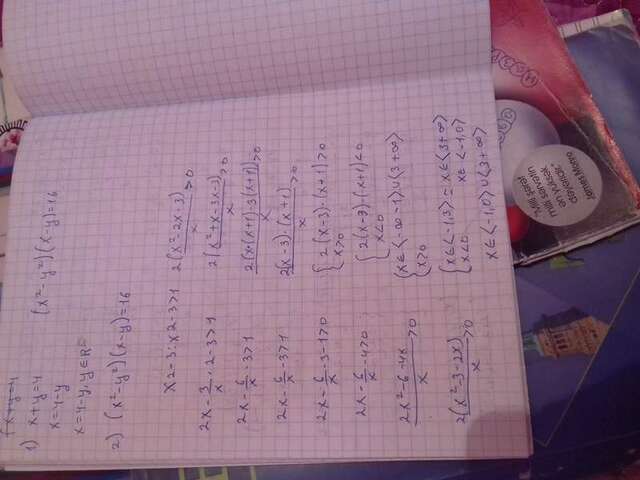 {x+y=4
1) x+y=4 (x²-y²)(x-y)=16
x=4-y
x=4-y, y∈R
2) (x²-y²)(x-y)=16
x2-3:x2-3>1
2x-3/x·2-3>1
2x-6/x-3>1
2x-6/x-3>1
2x-6/x-3-1>0
2x-6/x-4>0
2x²-6-4x/x>0
2(x²-3-2x)/x>0
2(x²-2x-3)/x>0
2(x²+x-3x-3)/x>0
2(x·(x+1)-3(x+1))/x>0
2(x-3)·(x+1)/x>0
{2(x-3)·(x+1)>0
x>0
{2(x-3)·(x+1)<0
x<0
{x∈<-∞-1>∪<3+∞>
x>0
{x∈<-1,3> = x∈<3+∞>
x<0 x∈<-1,0>
x∈<-1,0>∪<3+∞>
"Milli şərəf
milli sərvətin
ən yüksək
dəyəridir."
James Monro